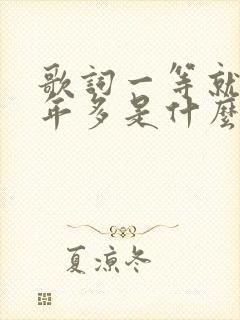 歌詞一等就
年多是什麼
夏涼冬